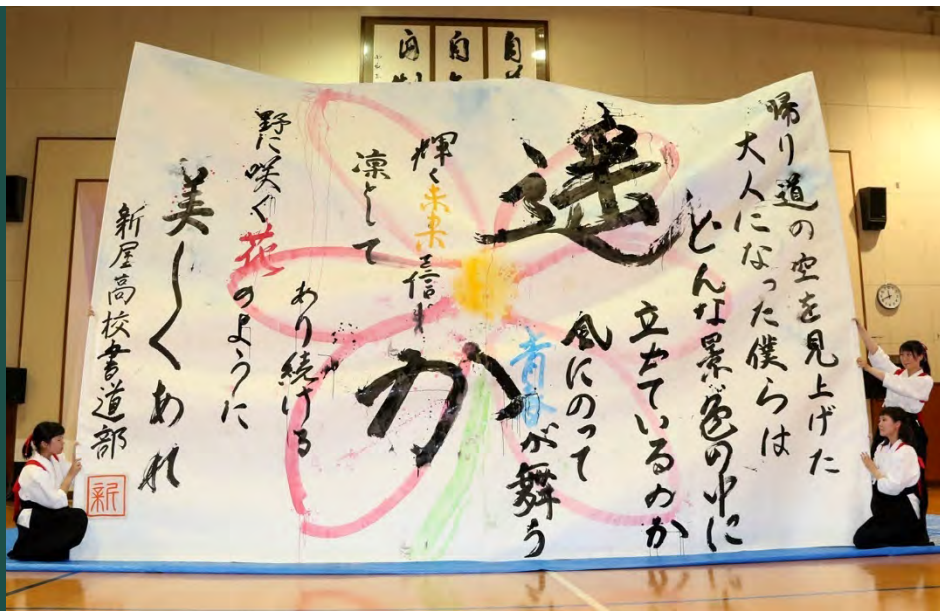 帰り道の空を見上げた
大人になった僕らは
どんな景色の中に
立っているのか
風にのって
青春が舞う
遥か
輝く未来を信じ
凛として
あり続ける
野に咲く花のように
美しくあれ
新屋高校書道部
新